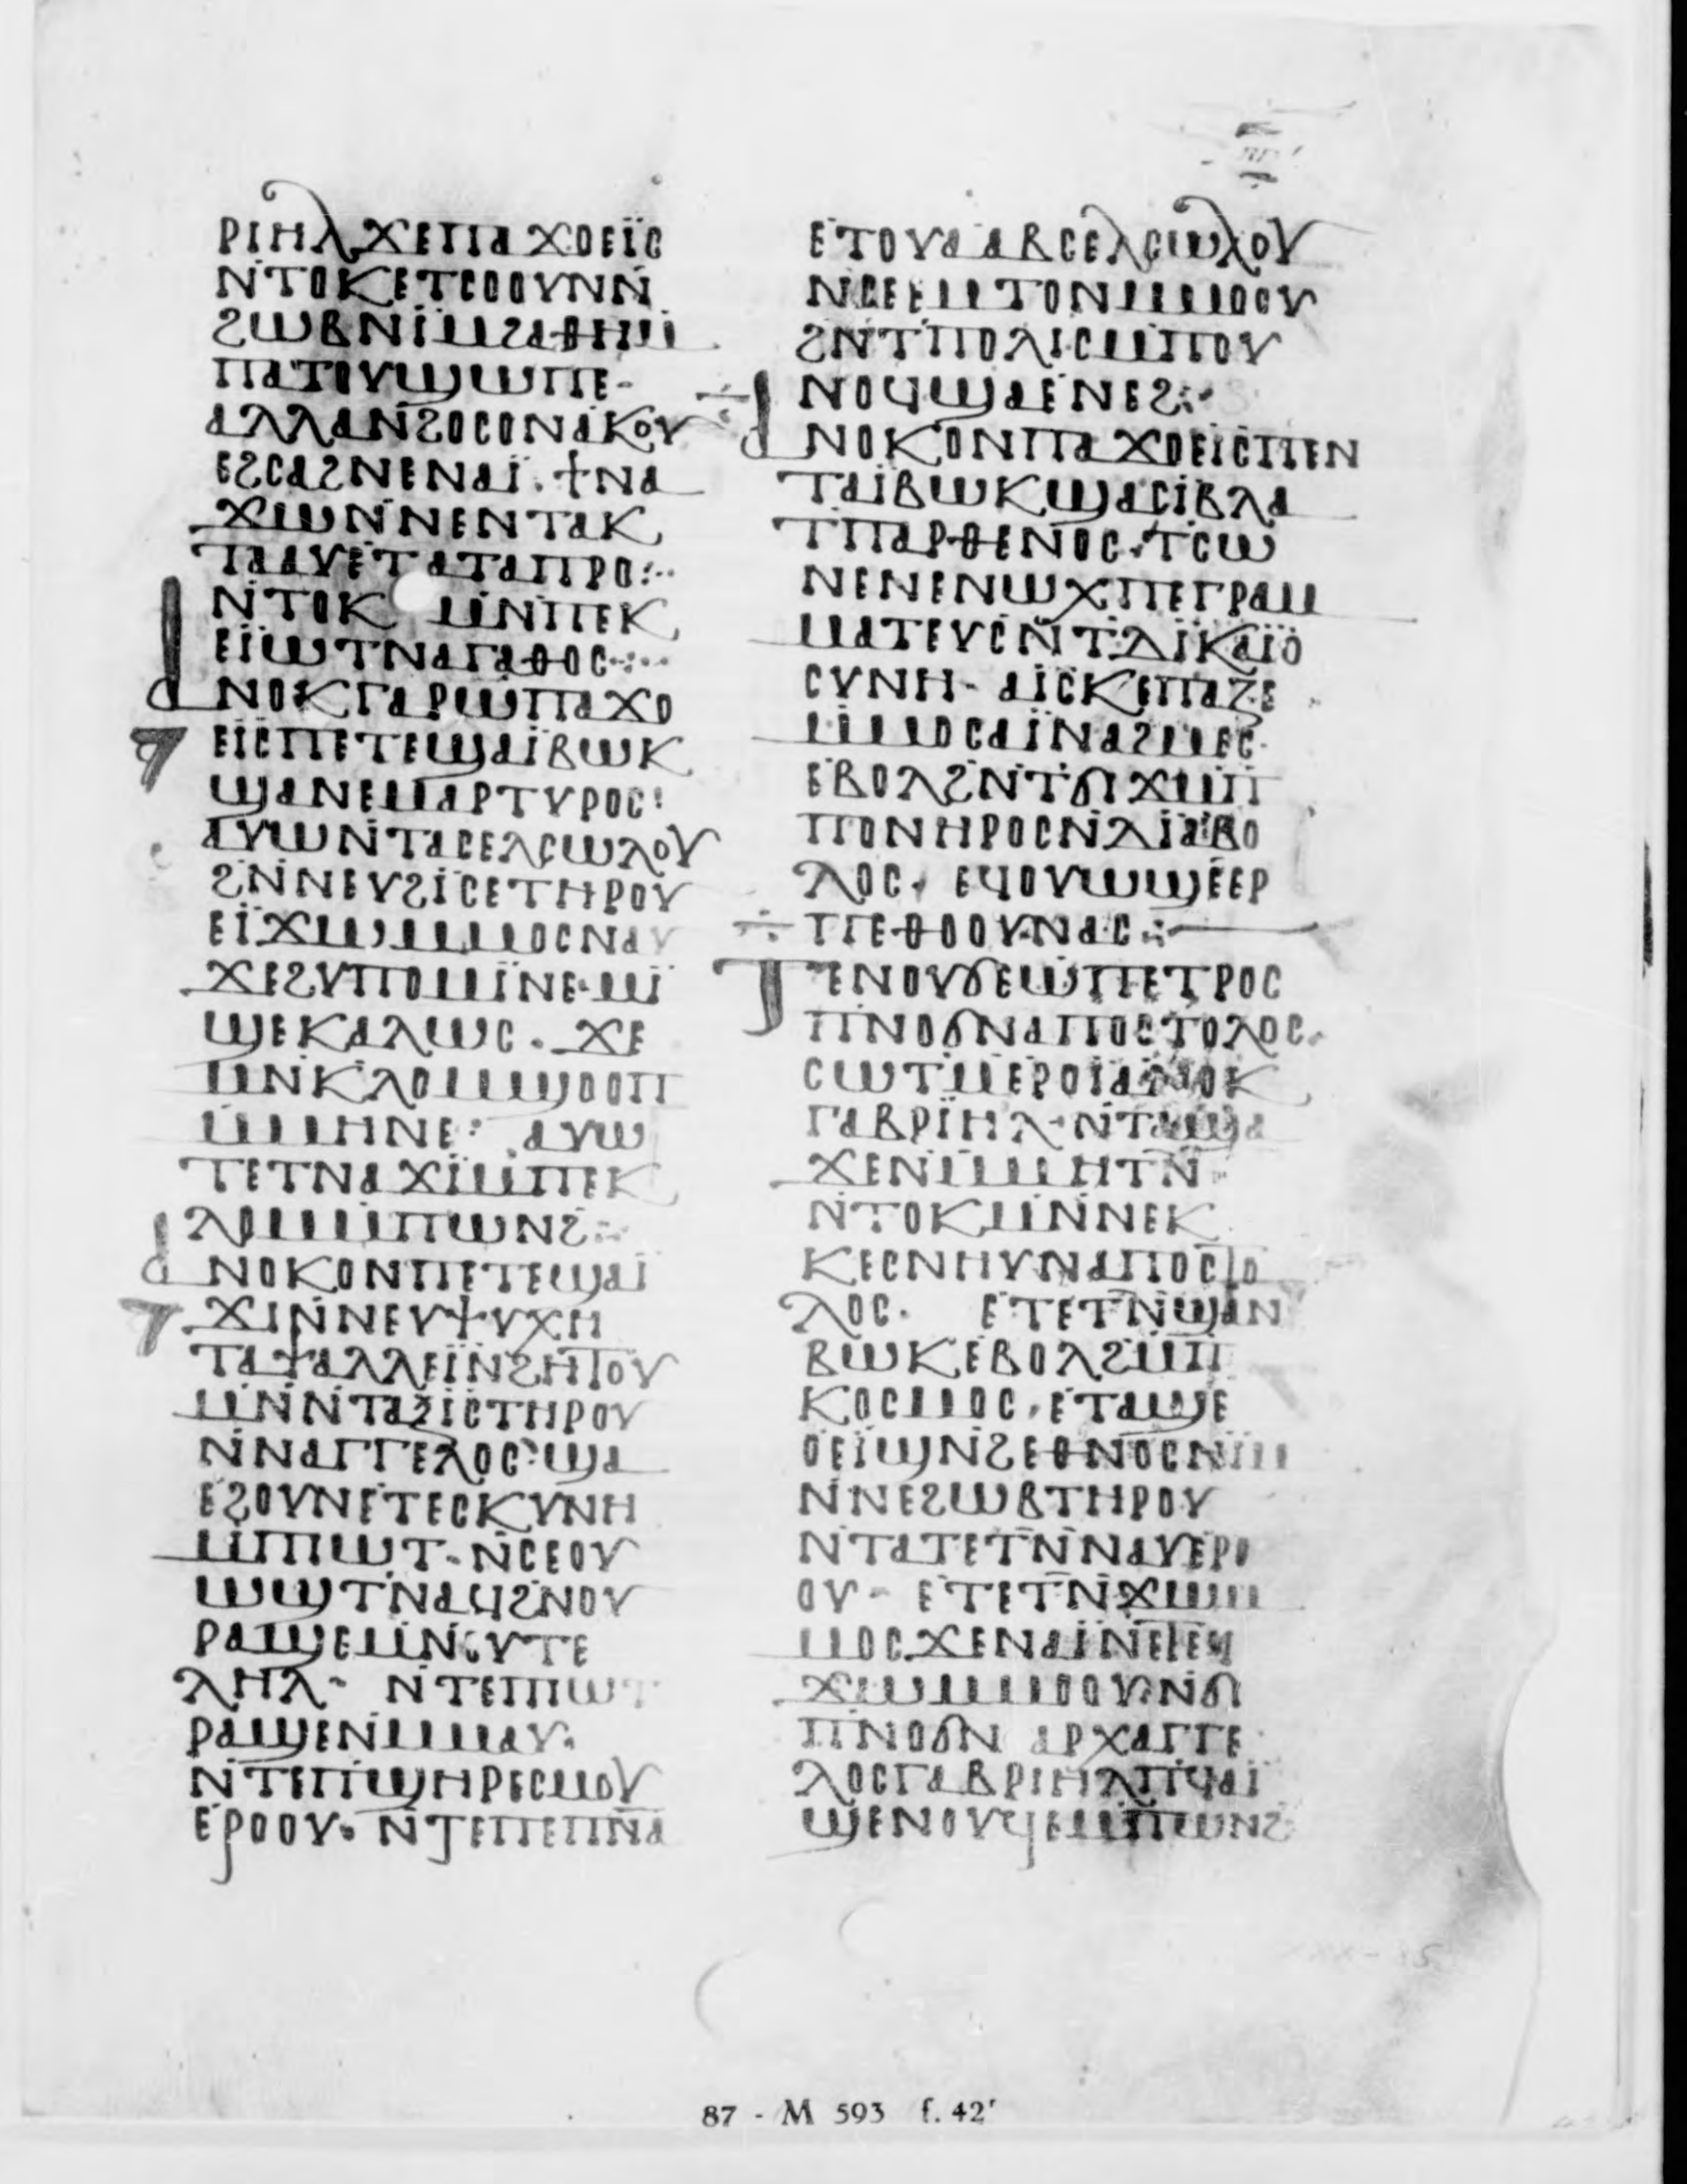 ⲣⲓⲏⲗϫⲉⲡⲁϫⲟⲉⲓ̈ⲥ
ⲛ̇ⲧⲟⲕⲉⲧⲥⲟⲟⲩⲛⲛ̇
ϩⲱⲃⲛⲓⲙϩⲁⲑⲏⲙ̇
ⲡⲁⲧⲟⲩϣⲱⲡⲉ-
ⲁⲗⲗⲁⲛ̇ϩⲟⲥⲟⲛⲁⲕⲟⲩ
ⲉϩⲥⲁϩⲛⲉⲛⲁⲓ̈. ϯⲛⲁ
ϫⲱⲛ̇ⲛⲉⲛⲧⲁⲕ
ⲧⲁⲁⲩⲉⲧⲁⲧⲁⲡⲣⲟ:··
ⲛ̇ⲧⲟⲕ ⲙⲛ̇ⲡⲉⲕ
ⲉⲓ̈ⲱⲧⲛⲁⲅⲁⲑⲟⲥ·:··
ⲁⲛⲟⲕⲅⲁⲣⲱ̇ⲡⲁϫⲟ
ⲉⲓ̈ⲥⲡⲉⲧⲉϣⲁⲓ̈ⲃⲱⲕ
ϣⲁⲛⲉⲙⲁⲣⲧⲩⲣⲟⲥ:
ⲁⲩⲱⲛ̇ⲧⲁⲥⲉⲗⲥⲱⲗⲟⲩ
ϩⲛ̇ⲛⲉⲩϩⲓⲥⲉⲧⲏⲣⲟⲩ
ⲉⲓ̈ϫⲱⲙ̇ⲙⲟⲥⲛⲁⲩ
ϫⲉϩⲩⲡⲟⲙⲓ̈ⲛⲉ·ⲙⲓ̈
ϣⲉⲕⲁⲗⲱⲥ. ϫⲉ
ⲙⲛ̇ⲕⲗⲟⲙϣⲟⲟⲡ
ⲙ̇ⲙⲏⲛⲉ: ⲁⲩⲱ
ⲧⲉⲧⲛⲁϫⲓⲙ̇ⲡⲉⲕ
ⲗⲟⲙⲙ̇ⲡⲱⲛϩ:··
ⲁⲛⲟⲕⲟⲛⲡⲉⲧⲉϣⲁⲓ̈
ϫⲓⲛ̇ⲛⲉⲩⲯⲩⲭⲏ
ⲧⲁⲯⲁⲗⲗⲉⲓ̈ⲛ̇ϩⲏⲧⲟⲩ
ⲙⲛ̇ⲛ̇ⲧⲁⲝⲓⲥⲧⲏⲣⲟⲩ
ⲛ̇ⲛⲁⲅⲅⲉⲗⲟⲥ:ϣⲁ
ⲉϩⲟⲩⲛⲉⲧⲉⲥⲕⲩⲛⲏ
ⲙ̇ⲡⲓⲱⲧ·ⲛ̇ⲥⲉⲟⲩ
ⲱϣⲧⲛⲁϥϩⲛⲟⲩ
ⲣⲁϣⲉⲙⲛ̇ⲟⲩⲧⲉ
ⲗⲏⲗ- ⲛ̇ⲧⲉⲡⲓⲱⲧ
ⲣⲁϣⲉⲛⲙ̇ⲙⲁⲩ·
ⲛ̇ⲧⲉⲡϣⲏⲣⲉⲥⲙⲟⲩ
ⲉⲣⲟⲟⲩ· ⲛ̇ⲧⲉⲡⲉⲡⲛ̅ⲁ̅
ⲉⲧⲟⲩⲁⲁⲃⲥⲉⲗⲥⲱⲗⲟⲩ
ⲛ̇ⲥⲉⲉⲙⲧⲟⲛⲙ̇ⲙⲟⲟⲩ
ϩⲛⲧⲡⲟⲗⲓⲥⲙ̇ⲡⲟⲩ
ⲛⲟϥϣⲁⲉⲛⲉϩ:·
ⲁⲛⲟⲕⲟⲛⲡⲁϫⲟⲉⲓⲥⲡⲉⲛ
ⲧⲁⲓ̈ⲃⲱⲕϣⲁⲥⲓⲃⲗⲁ
ⲧⲡⲁⲣⲑⲉⲛⲟⲥ·ⲧⲥⲱ
ⲛⲉⲛⲉⲛⲱⲭⲡⲉⲅⲣⲁⲙ
ⲙⲁⲧⲉⲩⲥⲛ̇ⲧⲇⲓ̈ⲕⲁⲓ̈ⲟ
ⲥⲩⲛⲏ- ⲁⲓ̈ⲥⲕⲉⲡⲁⲍⲉ
ⲙ̇ⲙⲟⲥⲁⲓ̈ⲛⲁϩⲙⲉⲥ·
ⲉⲃⲟⲗϩⲛ̇ⲧϭⲓϫⲙ̇ⲡ
ⲡⲟⲛⲏⲣⲟⲥⲛ̇ⲇⲓⲁⲃⲟ
ⲗⲟⲥ· ⲉϥⲟⲩⲱϣⲉⲉⲣ
ⲡⲉⲑⲟⲟⲩⲛⲁⲥ:·
ⲧⲉⲛⲟⲩϭⲉⲱ̇ⲡⲉⲧⲣⲟⲥ
ⲡⲛⲟϭⲛⲁⲡⲟⲥⲧⲟⲗⲟⲥ·
ⲥⲱⲧⲙⲉⲣⲟⲓ̈ⲁⲛⲟⲕ
ⲅⲁⲃⲣⲓ̈ⲏⲗ·ⲛ̇ⲧⲁϣⲁ
ϫⲉⲛⲙ̇ⲙⲏⲧⲛ̅
ⲛ̇ⲧⲟⲕⲙⲛ̇ⲛⲉⲕ
ⲕⲉⲥⲛⲏⲩⲛⲁⲡⲟⲥⲧⲟ
ⲗⲟⲥ· ⲉⲧⲉⲧⲛ̅ϣⲁⲛ
ⲃⲱⲕⲉⲃⲟⲗϩⲙ̇ⲡ
ⲕⲟⲥⲙⲟⲥ·ⲉⲧⲁϣⲉ
ⲟⲉⲓ̈ϣⲛ̇ϩⲉⲑⲛⲟⲥⲛⲓⲙ
ⲛ̇ⲛⲉϩⲱⲃⲧⲏⲣⲟⲩ
ⲛ̇ⲧⲁⲧⲉⲧⲛ̅ⲛⲁⲩⲉⲣⲟ
ⲟⲩ- ⲉⲧⲉⲧⲛ̅ϫⲱⲙ̇
ⲙⲟⲥϫⲉⲛⲁⲓ̈ⲛⲉⲧⲉϥ
ϫⲱⲙ̇ⲙⲟⲟⲩ·ⲛ̇ϭⲓ
ⲡⲛⲟϭⲛ ⲁⲣⲭⲁⲅⲅⲉ
ⲗⲟⲥⲅⲁⲃⲣⲓⲏⲗⲡϥⲁⲓ̈
ϣⲉⲛⲟⲩϥⲉⲙ̇ⲡⲱⲛϩ
87 - M 593 f. 42ʳ